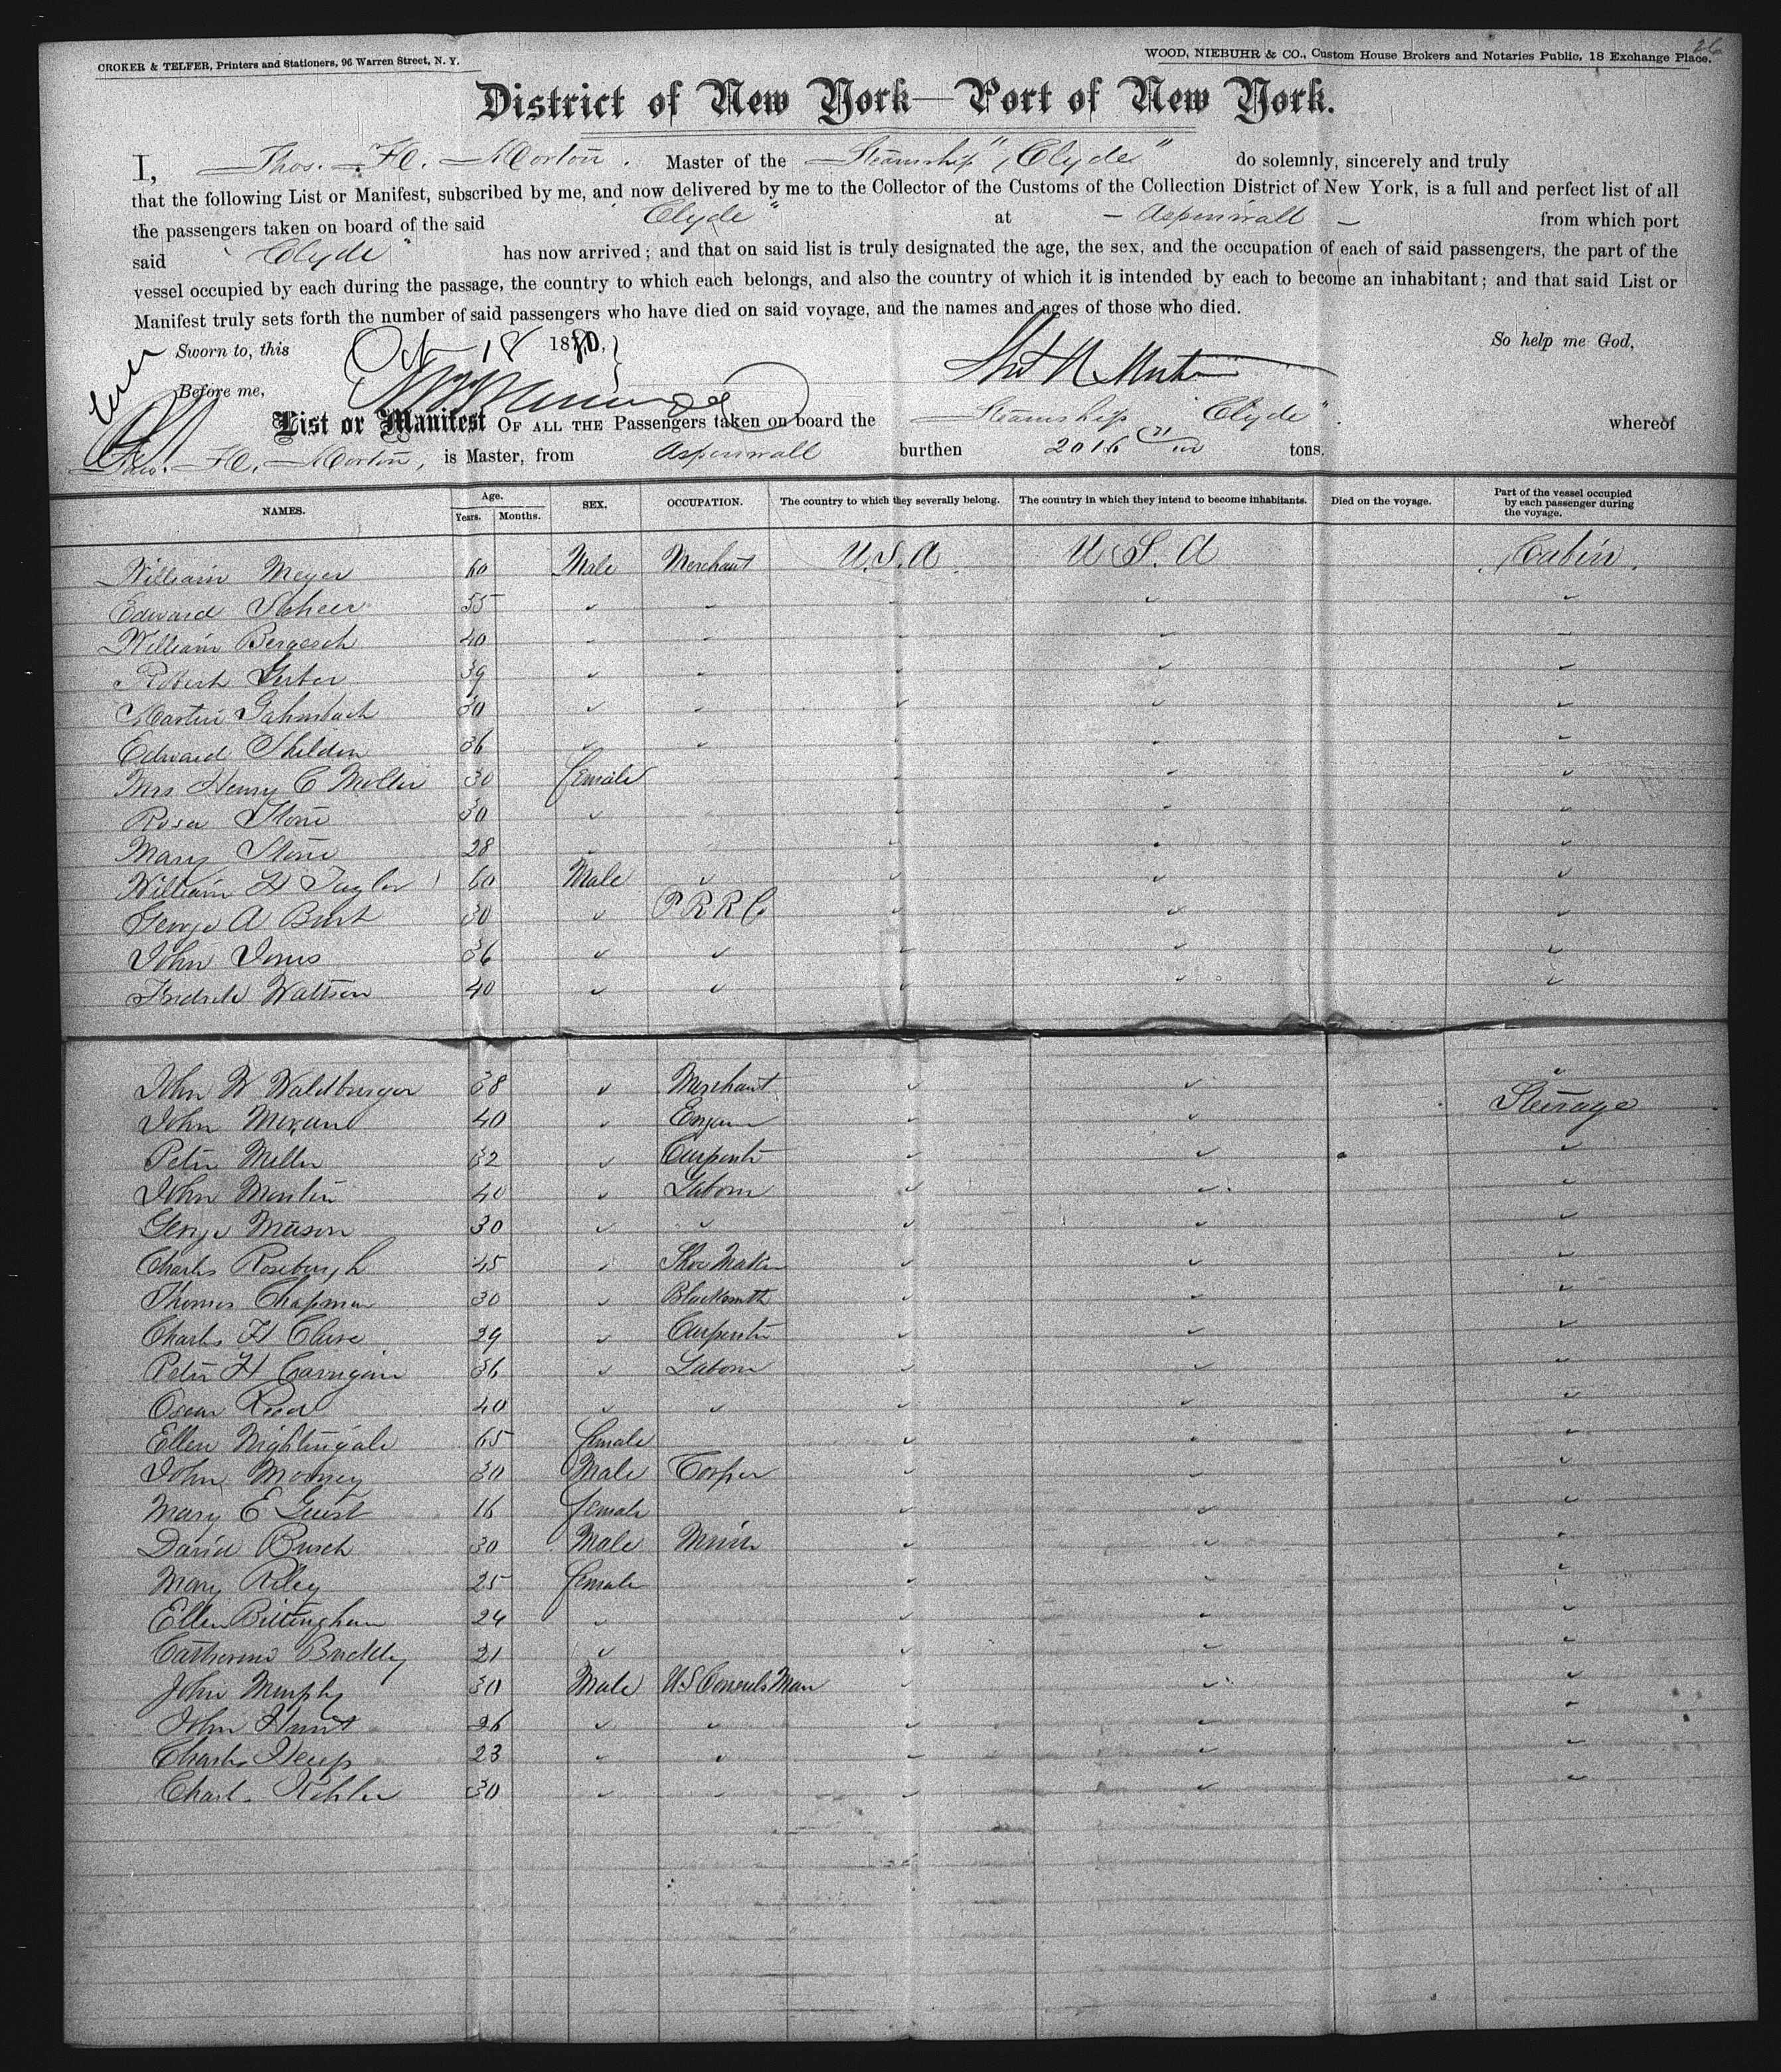 26
CROKER & TELFER, Printers and Stationers, 96 Warren Street, N. Y. WOOD, NIEBUHR & CO., Custom House Brokers and Notaries Public, 18 Exchange Place.
District of New York—Port of New York.
I, Thos. H. Morton. Master of the Steamship "Clyde" do solemnly, sincerely and truly
that the following List or Manifest, subscribed by me, and now delivered by me to the Collector of the Customs of the Collection District of New York, is a full and perfect list of all
the passengers taken on board of the said "Clyde" at – Aspinwall – from which port
said "Clyde" has now arrived; and that on said list is truly designated the age, the sex, and the occupation of each of said passengers, the part of the
vessel occupied by each during the passage, the country to which each belongs, and also the country of which it is intended by each to become an inhabitant; and that said List or
Manifest truly sets forth the number of said passengers who have died on said voyage, and the names and ages of those who died.
Sworn to, this Oct 18 1880, So help me God,
Before me,
List or Manifest OF ALL THE Passengers taken on board the Steamship "Clyde" whereof
Thos. H. Morton, is Master, from Aspinwall burthen 2016 tons.
NAMES. Age. Years. Months. SEX. OCCUPATION. The country to which they severally belong. The country in which they intend to become inhabitants. Died on the voyage. Part of the vessel occupied by each passenger during the voyage.
William Meyer 60 Male Merchant U.S.A. U S. A Cabin.
Edward Scheer 55 " " " " "
William Bergesch 40 " " " " "
Robert Gerber 39 " " " " "
Martin 30 " " " " "
Edward Sheldon 36 " " " " "
Mrs Henry C Moller 30 female " " "
Rosa Stone 30 " " " "
Mary Stone 28 " " " "
William H Taylor 60 Male " " " "
George A Burt 30 " P R R Co " " "
John Jones 36 " " " " "
Fredrick Wattson 40 " " " " "
John W Waldburger 38 " Merchant " " "
John Moran 40 " " " Steerage
Peter Miller 32 " Carpenter " " "
John Martin 40 " Laborer " " "
George Mason 30 " " " " "
Charles Roseburgh 45 " Shoe Maker " " "
Thomas Chapman 30 " Blacksmith " " "
Charles H Cluse 29 " Carpenter " " "
Peter H Carrigan 36 " Laborer " " "
Oscar Reed 40 " " " " "
Ellen Nightingale 65 female " " "
John Mooney 30 Male Cooper " " "
Mary E Guest 16 female " " "
David Busch 30 Male " " "
Mary Riley 25 female " " "
Ellen Billingham 24 " " " "
Catherine Buckley 21 " " " "
John Murphy 30 Male US Consuls Man " " "
John Hunt 26 " " " " "
Charles 23 " " " " "
Charl. Kohler 30 " " " " "